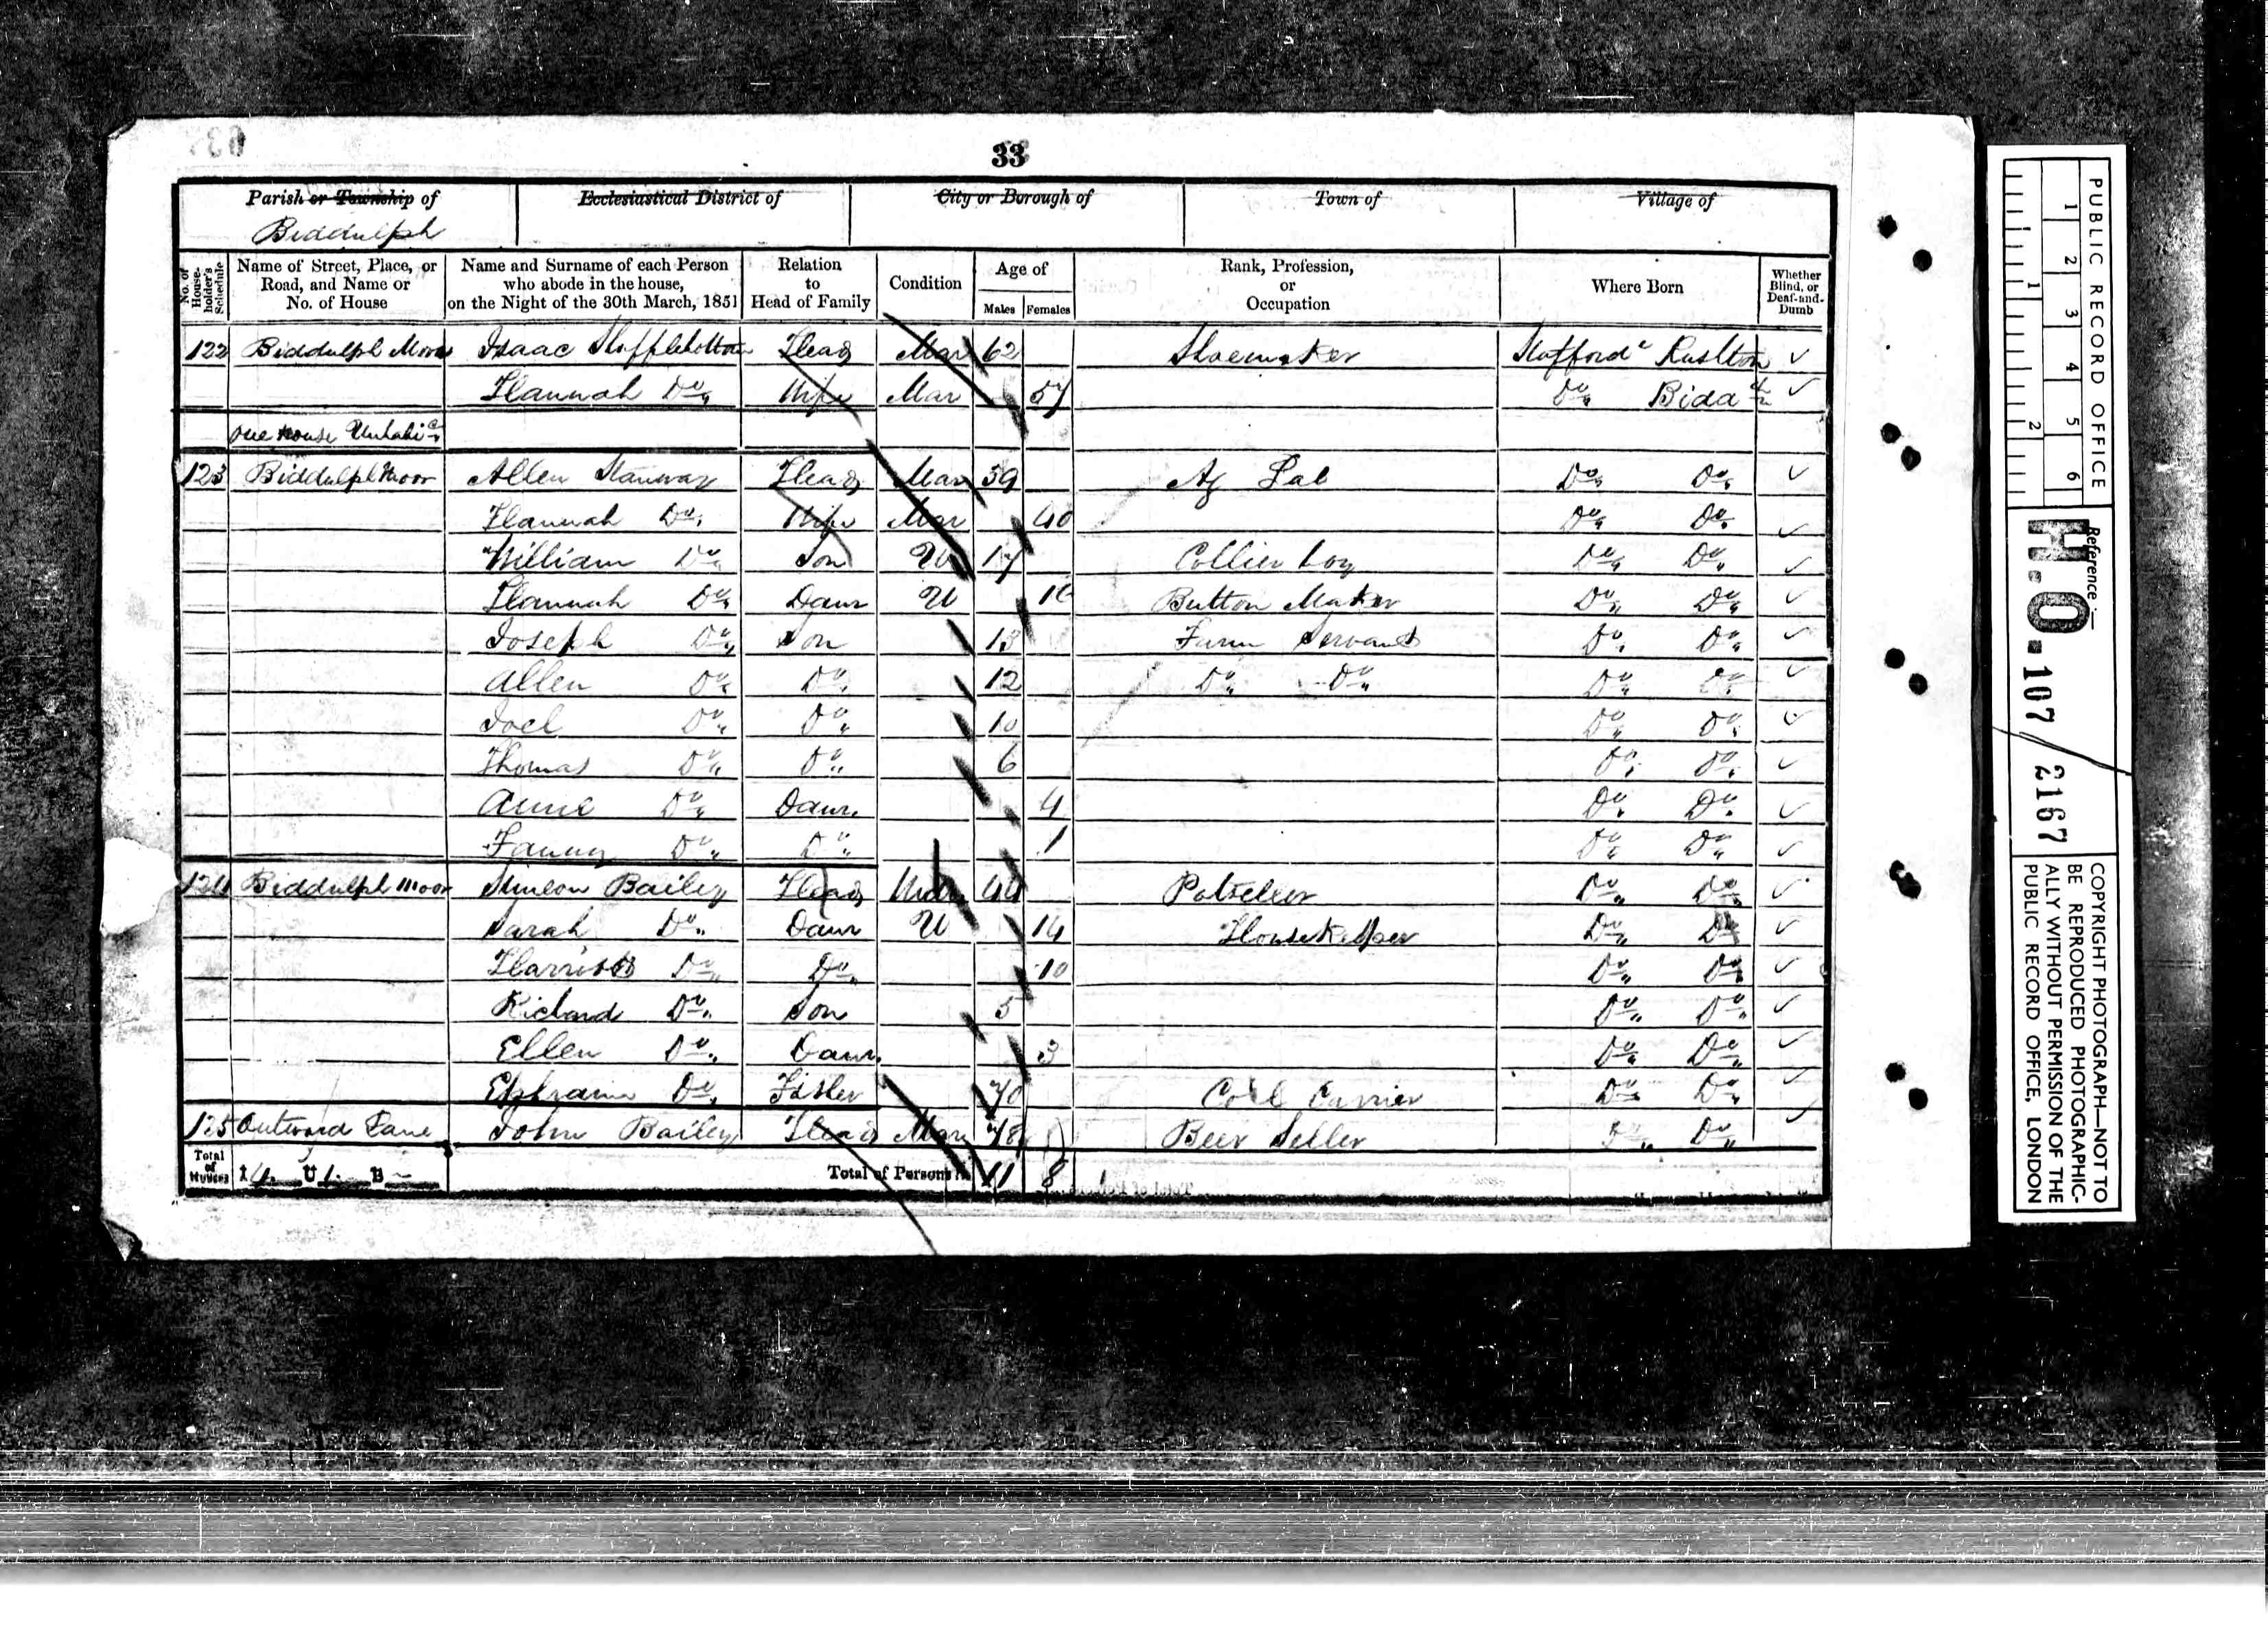 33
Parish or Township of
Ecclesiastical District of
City or Borough of
Town of
Village of
Biddulph
No. of House-holder's Schedule
Name of Street, Place, or Road, and Name or No. of House
Name and Surname of each Person who abode in the house, on the Night of the 30th March, 1851
Relation to Head of Family
Condition
Age of
Males Females
Rank, Profession, or Occupation
Where Born
Whether Blind, or Deaf-and-Dumb
122 Biddulph Moor Isaac Shufflebottom Head Mar 62 Shoemaker Stafford Rushton
Hannah Do Wife Mar 57 Do Bidd
One house Unhabi
123 Biddulph Moor Allen Stanway Head Mar 39 Ag Lab Do Do
Hannah Do Wife Mar 40 Do Do
William Do Son U 17 Collier boy Do Do
Hannah Do Daur U 16 Button Maker Do Do
Joseph Do Son 13 Farm Servant Do Do
Allen Do Do 12 Do Do Do Do
Joel Do Do 10 Do Do
Thomas Do Do 6 Do Do
Anne Do Daur 4 Do Do
Fanny Do Do 1 Do Do
124 Biddulph Moor Simeon Bailey Head 44 Potseller Do Do
Sarah Do Daur U 14 Housekeeper Do Do
Harriott Do Do 10 Do Do
Richard Do Son 5 Do Do
Ellen Do Daur 3 Do Do
Ephraim Do 70 Coal Carrier Do Do
125 Lane John Bailey Head Mar 48 Beer Seller Do Do
Total of Houses I 4 U 1 B —
Total of Persons 11 8
PUBLIC RECORD OFFICE
1 2 3 4 5 6
1 2
Reference :—
H.O. 107 / 2167
COPYRIGHT PHOTOGRAPH—NOT TO
BE REPRODUCED PHOTOGRAPHIC-
ALLY WITHOUT PERMISSION OF THE
PUBLIC RECORD OFFICE, LONDON